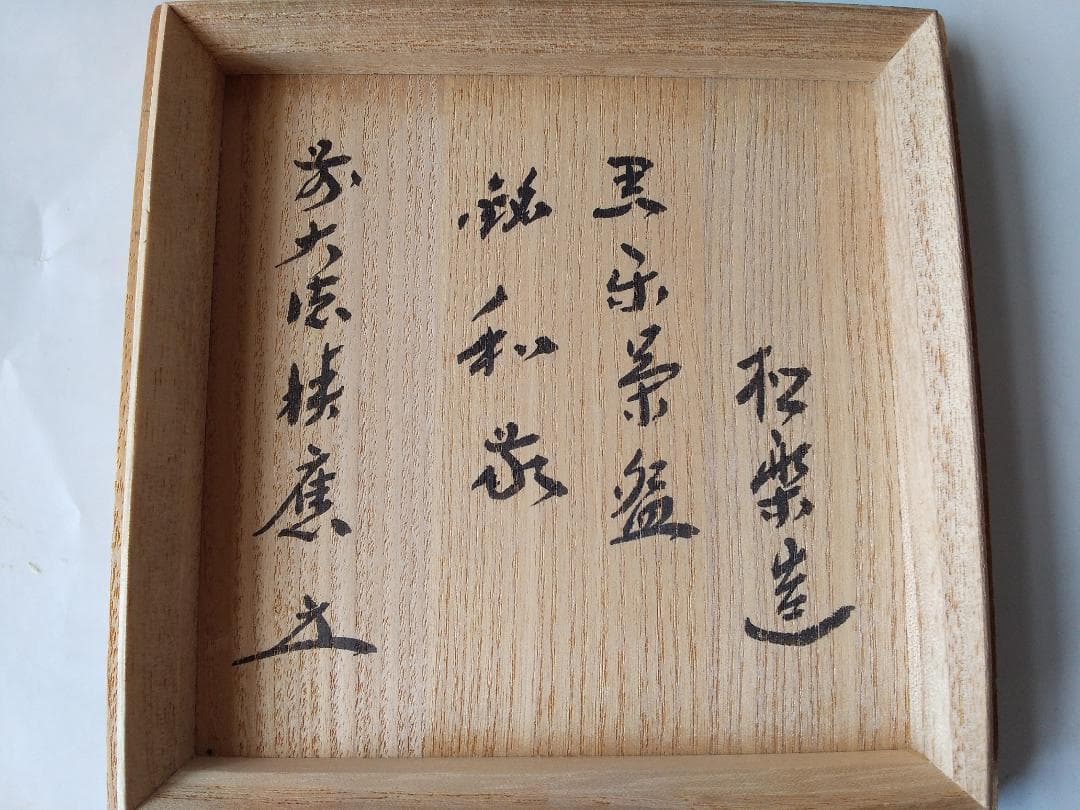 松楽造
黒楽茶盌
銘和敬
前大徳積應